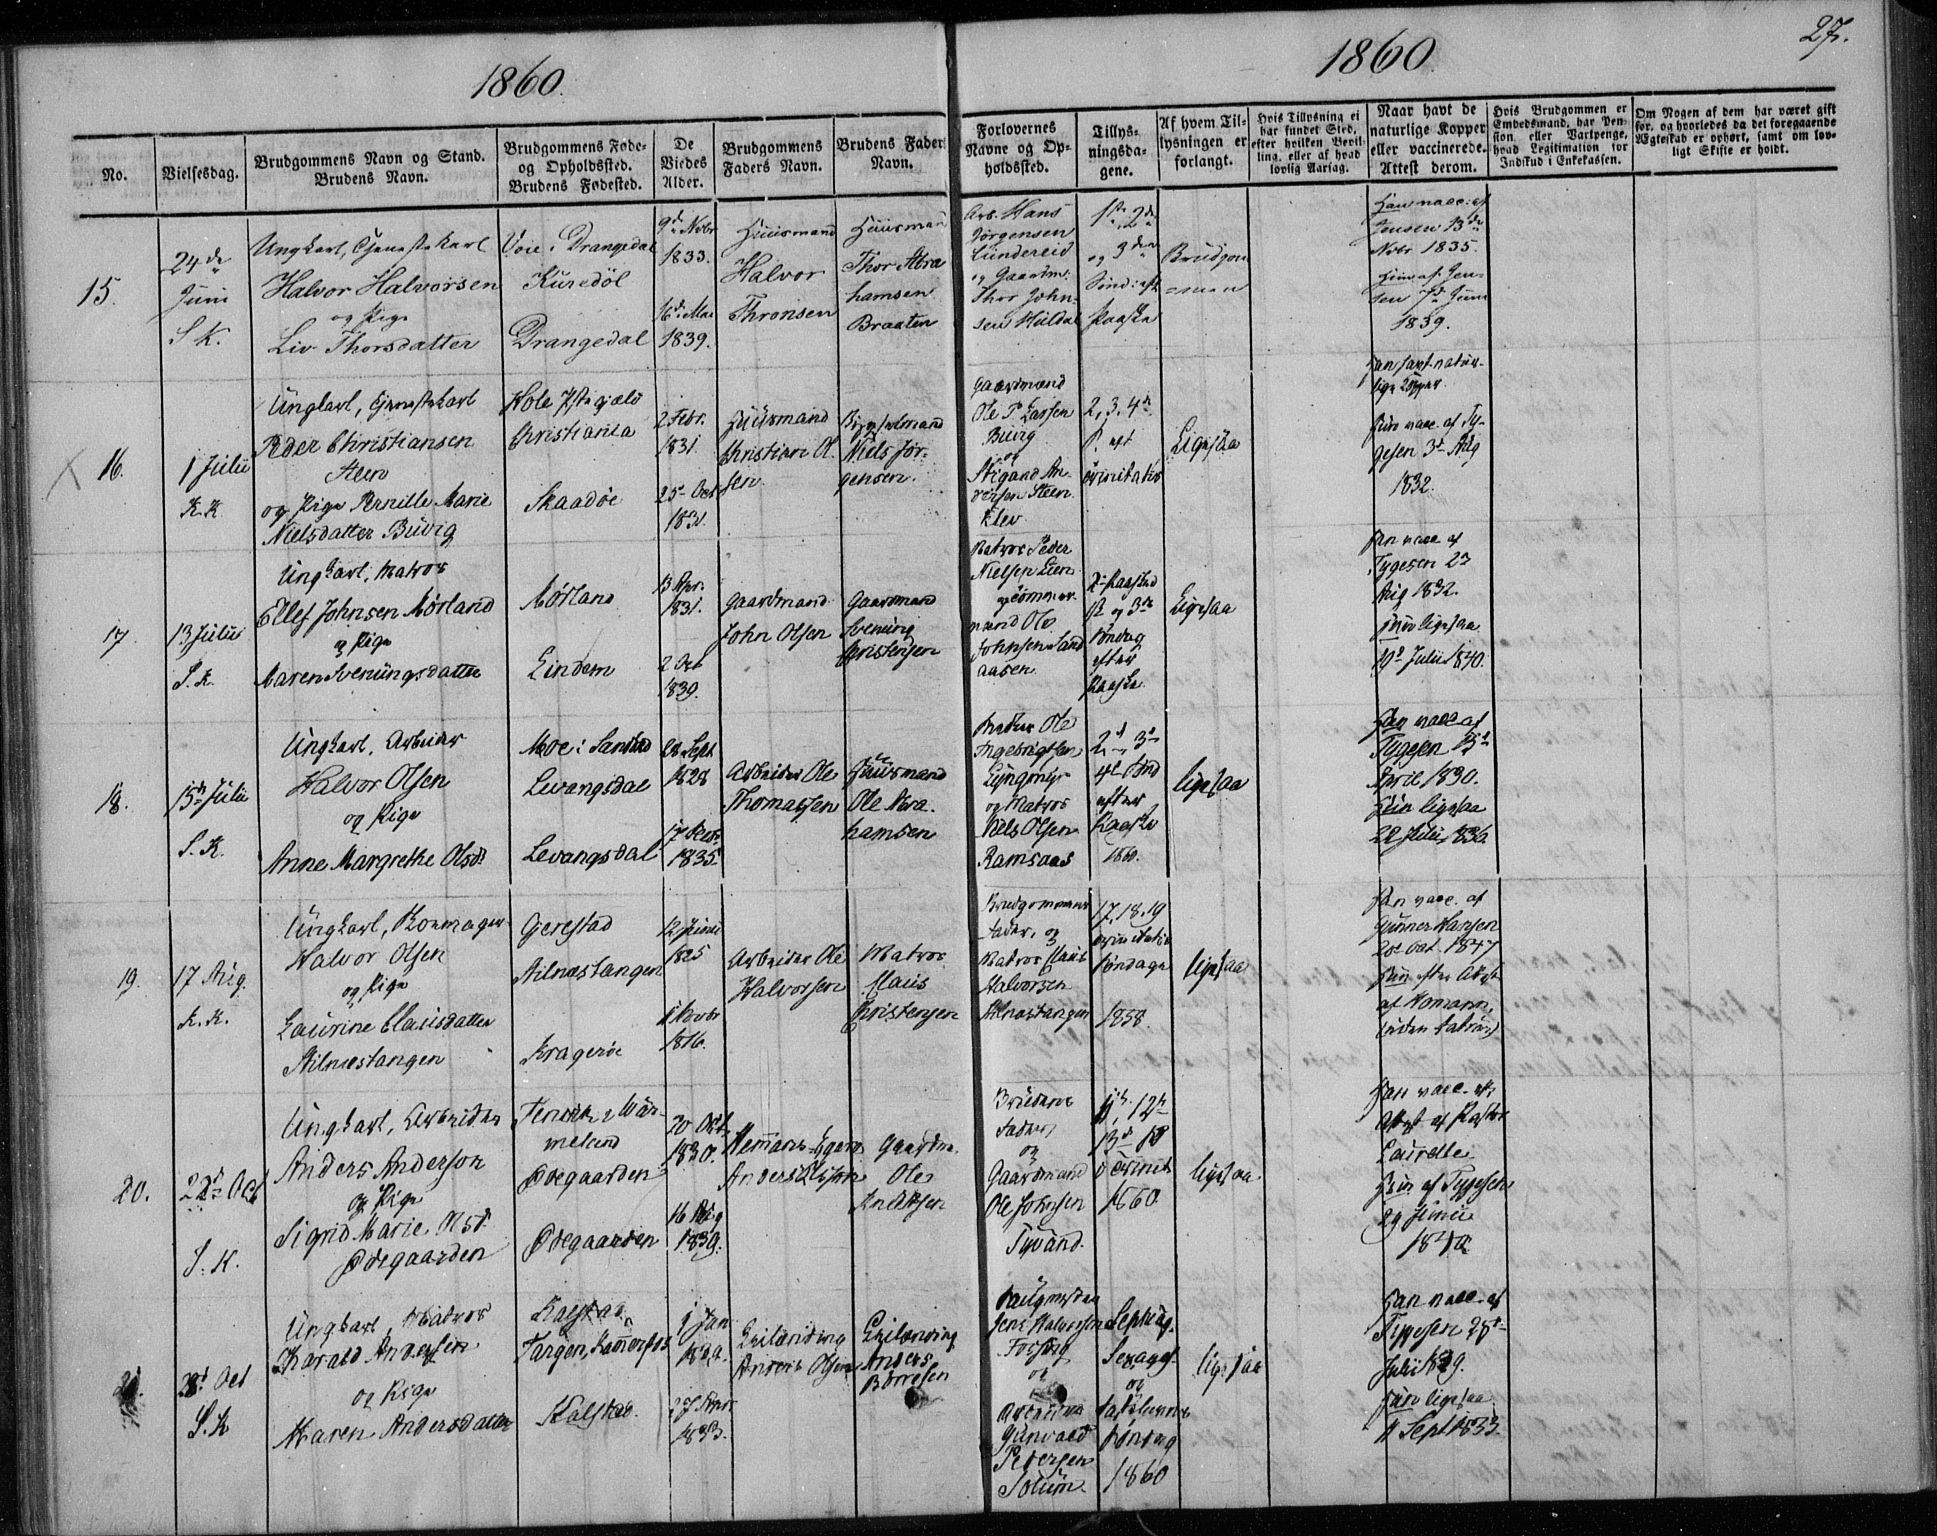 1860.
1860
27.
No.
Vielsesdag.
Brudgommens Navn og Stand.
Brudens Navn.
Brudgommens Føde-
og Opholdssted.
Brudens Fødested.
De
Viedes
Alder.
Brudgommens
Faders Navn.
Brudens Faders
Navn.
Forlovernes
Navne og Op-
holdssted.
Tillys-
ningsda-
gene.
Af hvem Til-
lysningen er
forlangt.
Hvis Tillysning ei
har fundet Sted,
efter hvilken Bevil-
ling, eller af hvad
lovlig Aarsag.
Naar havt de
naturlige Kopper
eller vaccinerede.
Attest derom.
Hvis Brudgommen er
Embedsmand, har Pen-
sion eller Vartpenge,
hvad Legitimation for
Indskud i Enkekassen.
Om Nogen af dem har været gift
før, og hvorledes da det foregaaende
Ægteskab er ophørt, samt om lov-
ligt Skifte er holdt.
15.
24de
Juni
S. K.
Ungkarl, Tjenestekarl
Halvor Halvorsen
og Pige
Liv Thorsdatter
Voie i Drangedal
Kuredøl
Drangedal
9de Novbr
1833.
16de Mai
1839.
Huusmand
Halvor
Thronsen
Huusmand
Thor Abra
hamsen
Braaten
Arb. Hans
Jørgensen
Lundereid
og Gaardm.
Thor John-
sen Huldal
1ste 2den
og 3den
Sønd: eft
Paaske
Brudgom
men
Han vacc: af
Jensen 13de
Novbr 1835.
Hun af Jen-
sen 7de Juni
1839.
16.
1 Julii
K. K
Ungkarl, Tjenestekarl
Peder Christiansen
Steen
og Pige Pernille Marie
Nielsdatter Buvig
Hole Pstegjæld
Christiania
Skaadøe
2 Febr.
1831.
25 Oct
1831.
Huusmand
Christian Ol
sen.
Bygselmand
Niels Jør-
gensen.
Gaardmand
Ole P. Larsen
Buvig
og
Stigand An-
dersen Steen
klev
2, 3, 4de
S. eft
trinitatis
Ligesaa
Han havt natur-
lige Kopper.
Hun vacc. af Ty-
gesen 3de Aug
1832.
17
13 Julii
S. K.
Ungkarl, Matros
Ellef Johnsen Mørland
og Pige
Maren Svenungsdatter
Mørland
Lindem
13 Apr.
1831.
2 Oct
1839.
Gaardmand
John Olsen
Gaardmand
Svenung
Christensen
Matros Peder
Nielsen Lien
og Tømmer-
mand Ole
Johnsen Sand
aasen.
2den Paaskd
og 3de
Søndag
efter
Paaske.
Ligesaa
Han vacc af
Tygesen 2den
Aug 1832.
Hun ligesaa
19de Julii 1840.
18.
15de Julii
S. K.
Ungkarl, Arbeider
Halvor Olsen
og Pige
Anne Margrethe Olsdr
Moe i Sannid
Levangsdal
Levangsdal
28 Sept
1828
1835.
Arbeider Ole
Thomassen
Huusmand
Ole Abra-
hamsen
Matros Ole
Ingebrigtsen
Lyngmyr
og Matros
Niels Olsen
Ramsaas
2d 3de
4de Sønd
efter
Paaske
1860.
ligesaa
Han vacc. af
Tygesen 15de
April 1830.
Hun ligesaa
22 Julii 1836.
19.
17 Aug.
K. K.
Ungkarl, Kormager
Halvor Olsen
og Pige
Laurine Clausdatter
Stilnestangen
Gjerestad
Stilnestangen
Kragerøe
12 Juni
1825
1 Novbr
1816.
Arbeider Ole
Halvorsen
Matros
Claus
Christensen
Brudgommens
Fader, og
Matros Claus
Halvorsen
Stilnestangen
17, 18, 19
trinitatis
Søndage
1858.
ligesaa
Han vacc. af
Gunner Hansen
20 Oct. 1847
Hun efter Attest
af Homann,
(uden datum)
20.
22de Oct
S. K.
Ungkarl, Arbeider
Anders Anderson
og Pige
Sigrid Marie Olsdr
Ødegaarden
Ferieh i Wär-
meland
Ødegaarden
Ødegaarden
20 Oct
1830.
16 Aug
1839.
Hemmans-Egare
Anders Olsson
Gaardm.
Ole
Knudsen
Brudens
Fader
og
Gaardmand
Ole Johnsen
Tyvand.
11te, 12te
13de S
e trinit
1860
ligesaa
Han vacc. eft
Attest af Pastor
Laurelle.
Hun af Tygesen
29 Junii
1840.
21.
28de Oct
S. K
Ungkarl, Matros
Harald Andersen
og Pige
Maren Andersdatter
Kalstad
Fargen, Kammerfos
Kalstad.
1 Jan
1829.
1833.
Huslænding
Anders Olsen
Huslænding
Anders
Børresen
Jens Halvorsen
Fossing
og
Arbeider
Gunvald
Pedersen
Solum.
Septuag.
Sexages.
og
Fastelavns
Søndag
1860
ligesaa
Han vacc. af
Tygesen 28de
Julii 1829.
Hun ligesaa
11 Sept 1833.